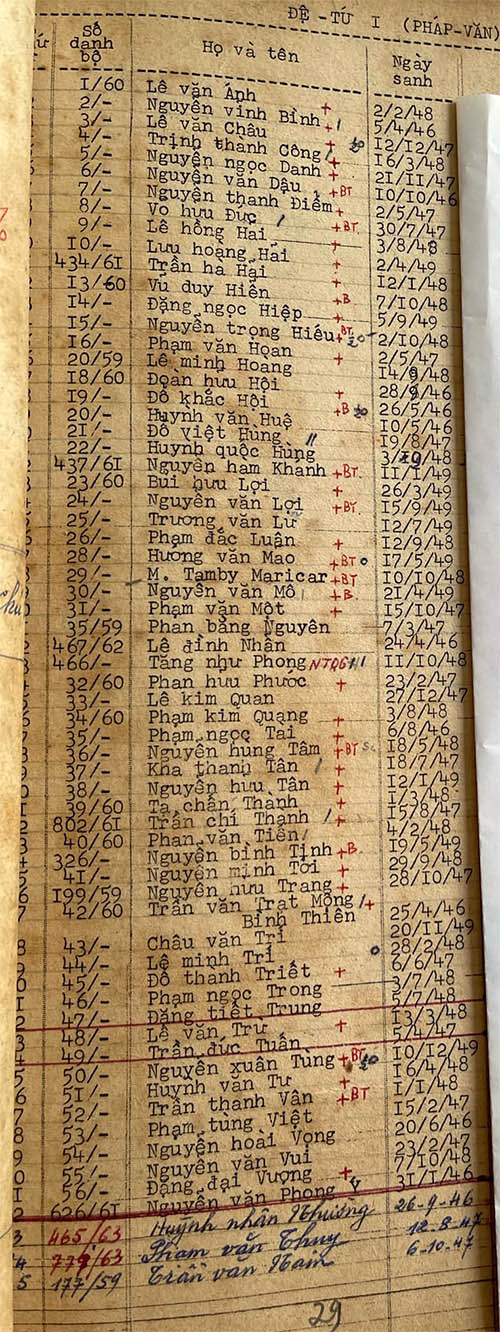 ĐỆ-TỨ I (PHÁP-VĂN)
Số danh bộ Họ và tên Ngày sanh
I/60 Lê văn Ánh + 2/2/48
2/- Nguyễn vinh Bình + 5/4/46
3/- Lê văn Châu + I2/I2/47
4/- Trịnh thành Công + I6/3/48
5/- Nguyễn ngọc Danh + 2I/II/47
6/- Nguyễn văn Dậu +BT I0/I0/46
7/- Nguyễn thanh Điểm + 2/5/47
8/- Vo hưu Đức +BT. 30/7/47
9/- Lê hồng Hai + 3/8/48
I0/- Lưu hoàng Hải + 2/4/49
434/6I Trần ha Hai + I2/I/48
I3/-60 Vủ duy Hiển +B 7/I0/48
I4/- Đặng ngọc Hiệp + 5/9/49
I5/- Nguyễn trọng Hiếu +BT. 2/I0/48
I6/- Phạm văn Họan + 2/5/47
20/59 Lê minh Hoang I4/9/48
I8/60 Đoàn hưu Hội 28/9/46
I9/- Đổ khắc Hội +B 26/5/46
20/- Huynh văn Huệ I0/5/46
2I/- Đổ việt Hung I9/8/47
22/- Huynh quốc Hùng 3/I0/48
437/6I Nguyễn ham Khanh +BT. II/I/49
23/60 Bui hưu Lợi + 26/3/49
24/- Nguyễn văn Lợi +BT. I5/9/49
25/- Trương văn Lư I2/7/49
26/- Phạm đắc Luận + I2/9/48
28/- Hương văn Mao +BT I7/5/49
29/- M. Tamby Maricar +BT I0/I0/48
30/- Nguyễn văn Mô +B. 2I/4/49
3I/- Phạm văn Một + I5/I0/47
35/59 Phan bằng Nguyên 7/3/47
467/62 Lê đình Nhân 24/4/46
466/- Tăng như Phong II/I0/48
32/60 Phan hưu Phước + 23/2/47
33/- Lê kim Quan 27/I2/47
34/60 Phạm kim Quang + 3/8/48
35/- Phạm ngọc Tai + 6/8/46
36/- Nguyễn hung Tâm +BT I8/5/48
37/- Kha thanh Tân + I8/7/47
38/- Nguyễn hưu Tân + I2/I/49
39/60 Tạ chấn Thanh + I/3/48
802/6I Trần chí Thạnh + I5/8/47
40/60 Phan văn Tiên 4/2/48
326/- Nguyễn bỉnh Tịnh +B. I9/5/49
4I/- Nguyễn minh Tới + 29/9/48
I99/59 Nguyễn hưu Trang + 28/I0/47
42/60 Trần văn Trat Mộng +
Bình Thiên 25/4/46
43/- Châu văn Trí 20/II/49
44/- Lê minh Trí 28/2/48
45/- Đổ thanh Triết + 6/6/47
46/- Phạm ngọc Trong 3/7/48
47/- Đặng tiết Trung 5/7/48
48/- Lê văn Trừ + I3/3/48
49/- Trần đức Tuấn 5/4/47
50/- Nguyễn xuân Tùng +BT I0/I2/49
5I/- Huynh văn Tư + I6/4/48
52/- Trần thanh Vân +BT I/I/48
53/- Phạm tung Việt I5/2/47
54/- Nguyễn hoài Vọng 20/6/46
55/- Nguyễn văn Vui 23/2/47
56/- Đặng đại Vượng + 7/I0/48
626/6I Nguyễn văn Phong 3I/I/46
465/63 Huỳnh nhân Nhường 26-9-46
779/63 Phạm văn Thuy 12-8-47
177/59 Trần văn Nam 6-10-47
29